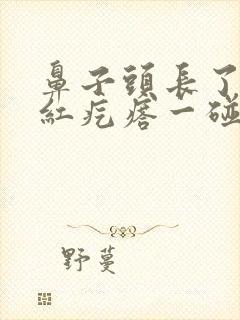 鼻子頭長了
紅疙瘩一碰
野蔓